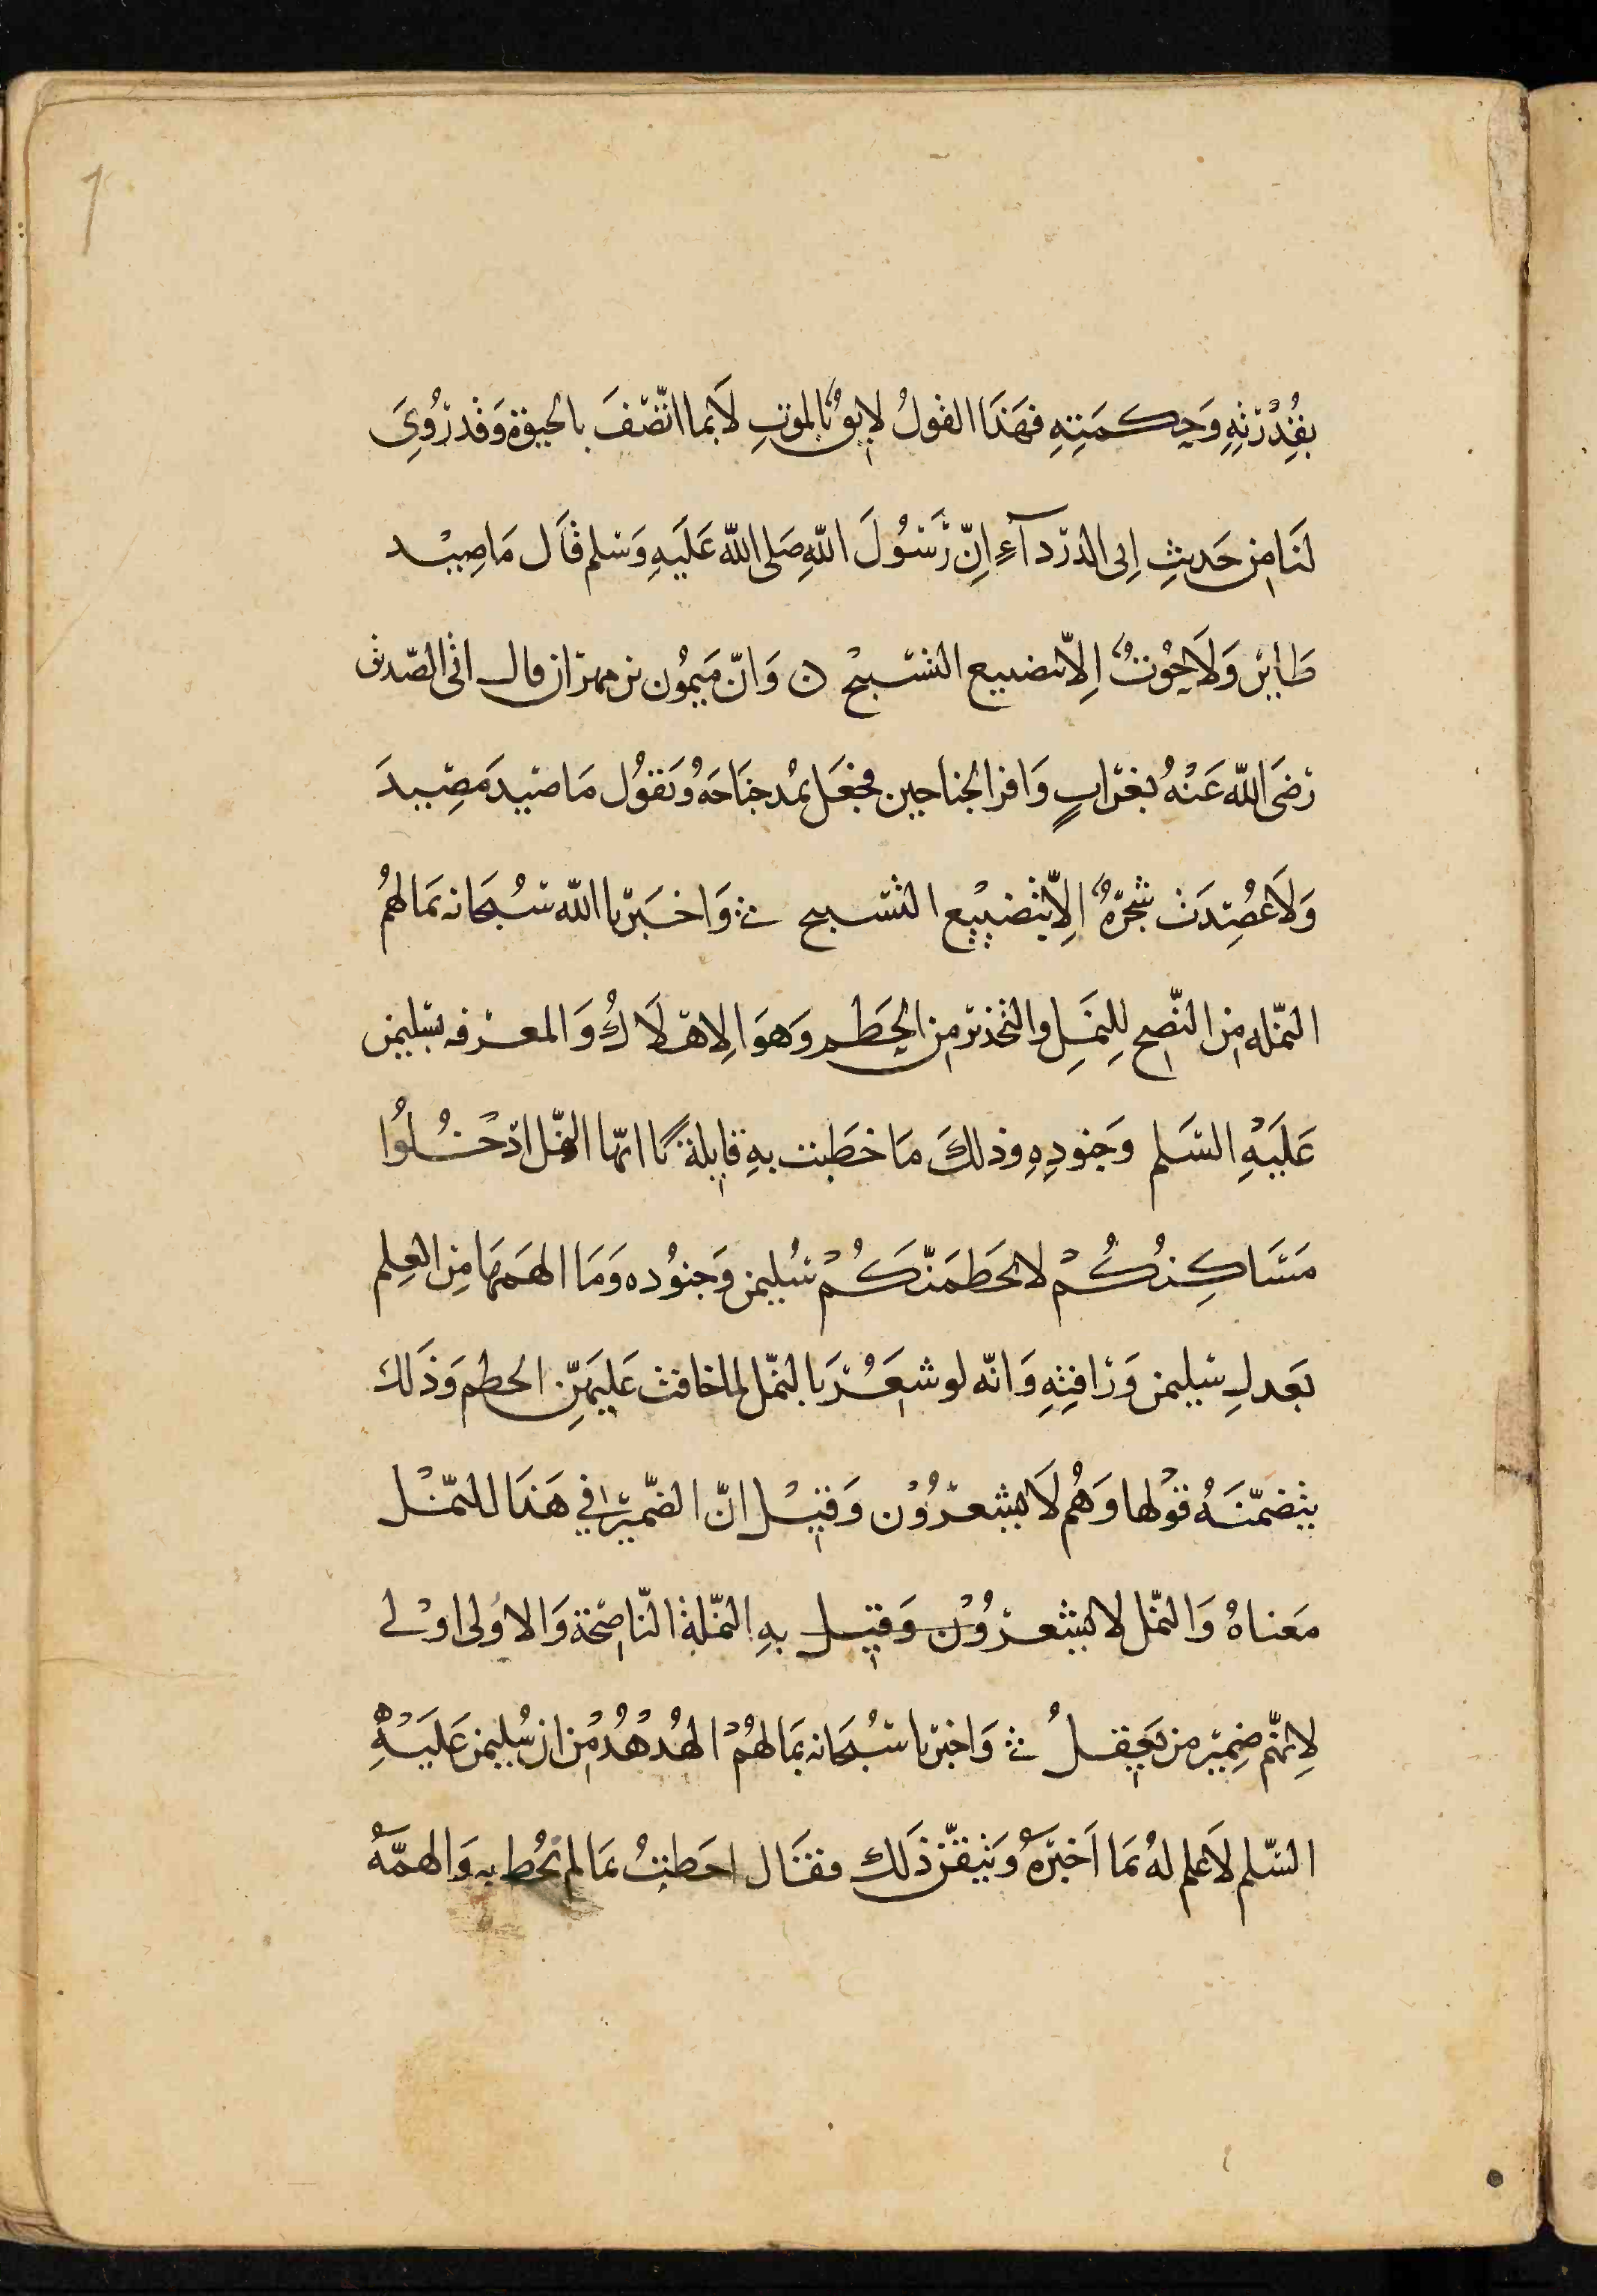 بقُدْرَتِهِ وَحِكمَتِهِ فهَذَا القولُ لايقٌ بالموتِ لَا بما اتّصَفَ بالحيوة وَقد رُوِيَ
لنَا من حَديثِ ابى الدّردآءِ انّ رَسُولَ اللّهِ صَلى اللّه عَلَيهِ وَسَلم قَال مَا صِيْد
طَايرٌ وَلَا حُوتٌ الّا بتضييع التسْبيحْ ٥ وَانّ مَيمُون بن مهران قال اتى الصّديق
رَضىَ اللّه عَنْهُ بغرَابٍ وَافر الجناحين فجعَل يمُد جنَاحَهُ وَيَقوُل مَا صيدَ مَصِيدَ
وَلَا عُضِدَت شجَرَةٌ الّا بتضييْع التسْبيح وَاخبَرنا اللّه سُبحَانه بمَا لهُم
النّملة من النّصح لِلنمَلِ والتحذير من الحَطم وَهوَ الاهلَاكُ وَالمعرفه بسليمن
عَلَيْهِ السَلم وَجنودِهِ وذلكَ مَا خطَبت بهِ قايلةً يا ايّها النّمل ادْخُلُوا
مَسَاكِنكُمْ لا يحَطمَنّكُمْ سُليمن وَجنوُده وَمَا الهمَهَا مِن العِلم
بَعدلِ سليمن وَرَافتِهِ وَانّه لو شعَرَ بالنمّل لما خافت عَليهَنّ الحطم وَذَلك
يتضمّنَهُ قوْلها وَهُم لَا يشعرُوْن وَقيْل انّ الضّمير في هَذَا للنمّل
مَعناهُ وَالنمّل لا يشعرُوْن وَقيل بهِ النمّلة النّاصحَة وَالاوُلى اوْلى
لانّهم ضِمير من يَعقلُ وَاخبرنا سُبحَانه بمَا لهُمْ الهُدْهُدُ من ان سُليمن عَلَيْهِ
السّلم لَا علم لهُ بمَا اَخبَرَهُ وَيَتيقّن ذَلك فقَال احَطتُ بمَا لم تحُط به وَالهمَهُ